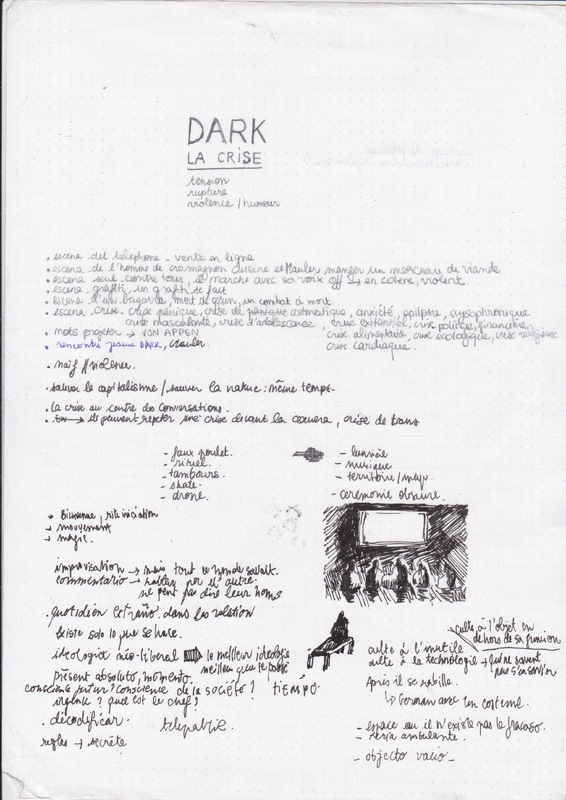 DARK
LA CRISE
tension
rupture
violence / humour
• escena del telephone - vente en ligne
• escena de l'homme de cromagnon cuisine et Mauler manger un morceau de viande
• escena seul contre tous, il marche avec sa voix off en colère, violent.
• escena grafiti, un grafiti se fait
• escena d'un bagarde, mort de faim, un combat à mort
• escena crise. crise panique, crise de asthmatique, anxiété, epilpse,
crise masculiniste, crise d'adolescence, crise existenciel, crise politique, financière
crise alimentaire, crise ecologique, crise religieux
crise cardiaque.
• mots projeter → VAN APPEN
• rencontre Jeanne DARK, crauler.
• naïf // violence.
• sauver le capitalisme / sauver la nature : même temps.
• la crise au centre des conversations.
• ils peuvent repeter une crise devant la camera, crise de trans
- faux poulet.
- rituel.
- tambours.
- skate.
- drone.
- lumière
- musique
- territoire / map.
- ceremonie obscure.
→ Bienvenue, rite iniciation
→ mouvement
→ magie.
improvisation → mais tout le monde savait.
commentario → hablar por el autre.
ne peut pas dire leur noms
• quotidien extraño dans les relation
Existe solo lo que se hace.
ideologia neo-liberal le meilleur ideologie
meilleur que le passé
Présent absoluto, momento.
conscience futur? conscience de la société? TIEMPO.
urgence? quel est le chef?
• décodificar.
telepathie
regles → secrète
culte à l'objet en
dehors de sa fonction
culte à l'inutile
culte à la technologie → qui ne savent
pas s'en servir
Après il se rabille.
↳ German avec un costume.
- espace ou il n'existe pas le fracaso.
- ambulante.
- objecto vacio -